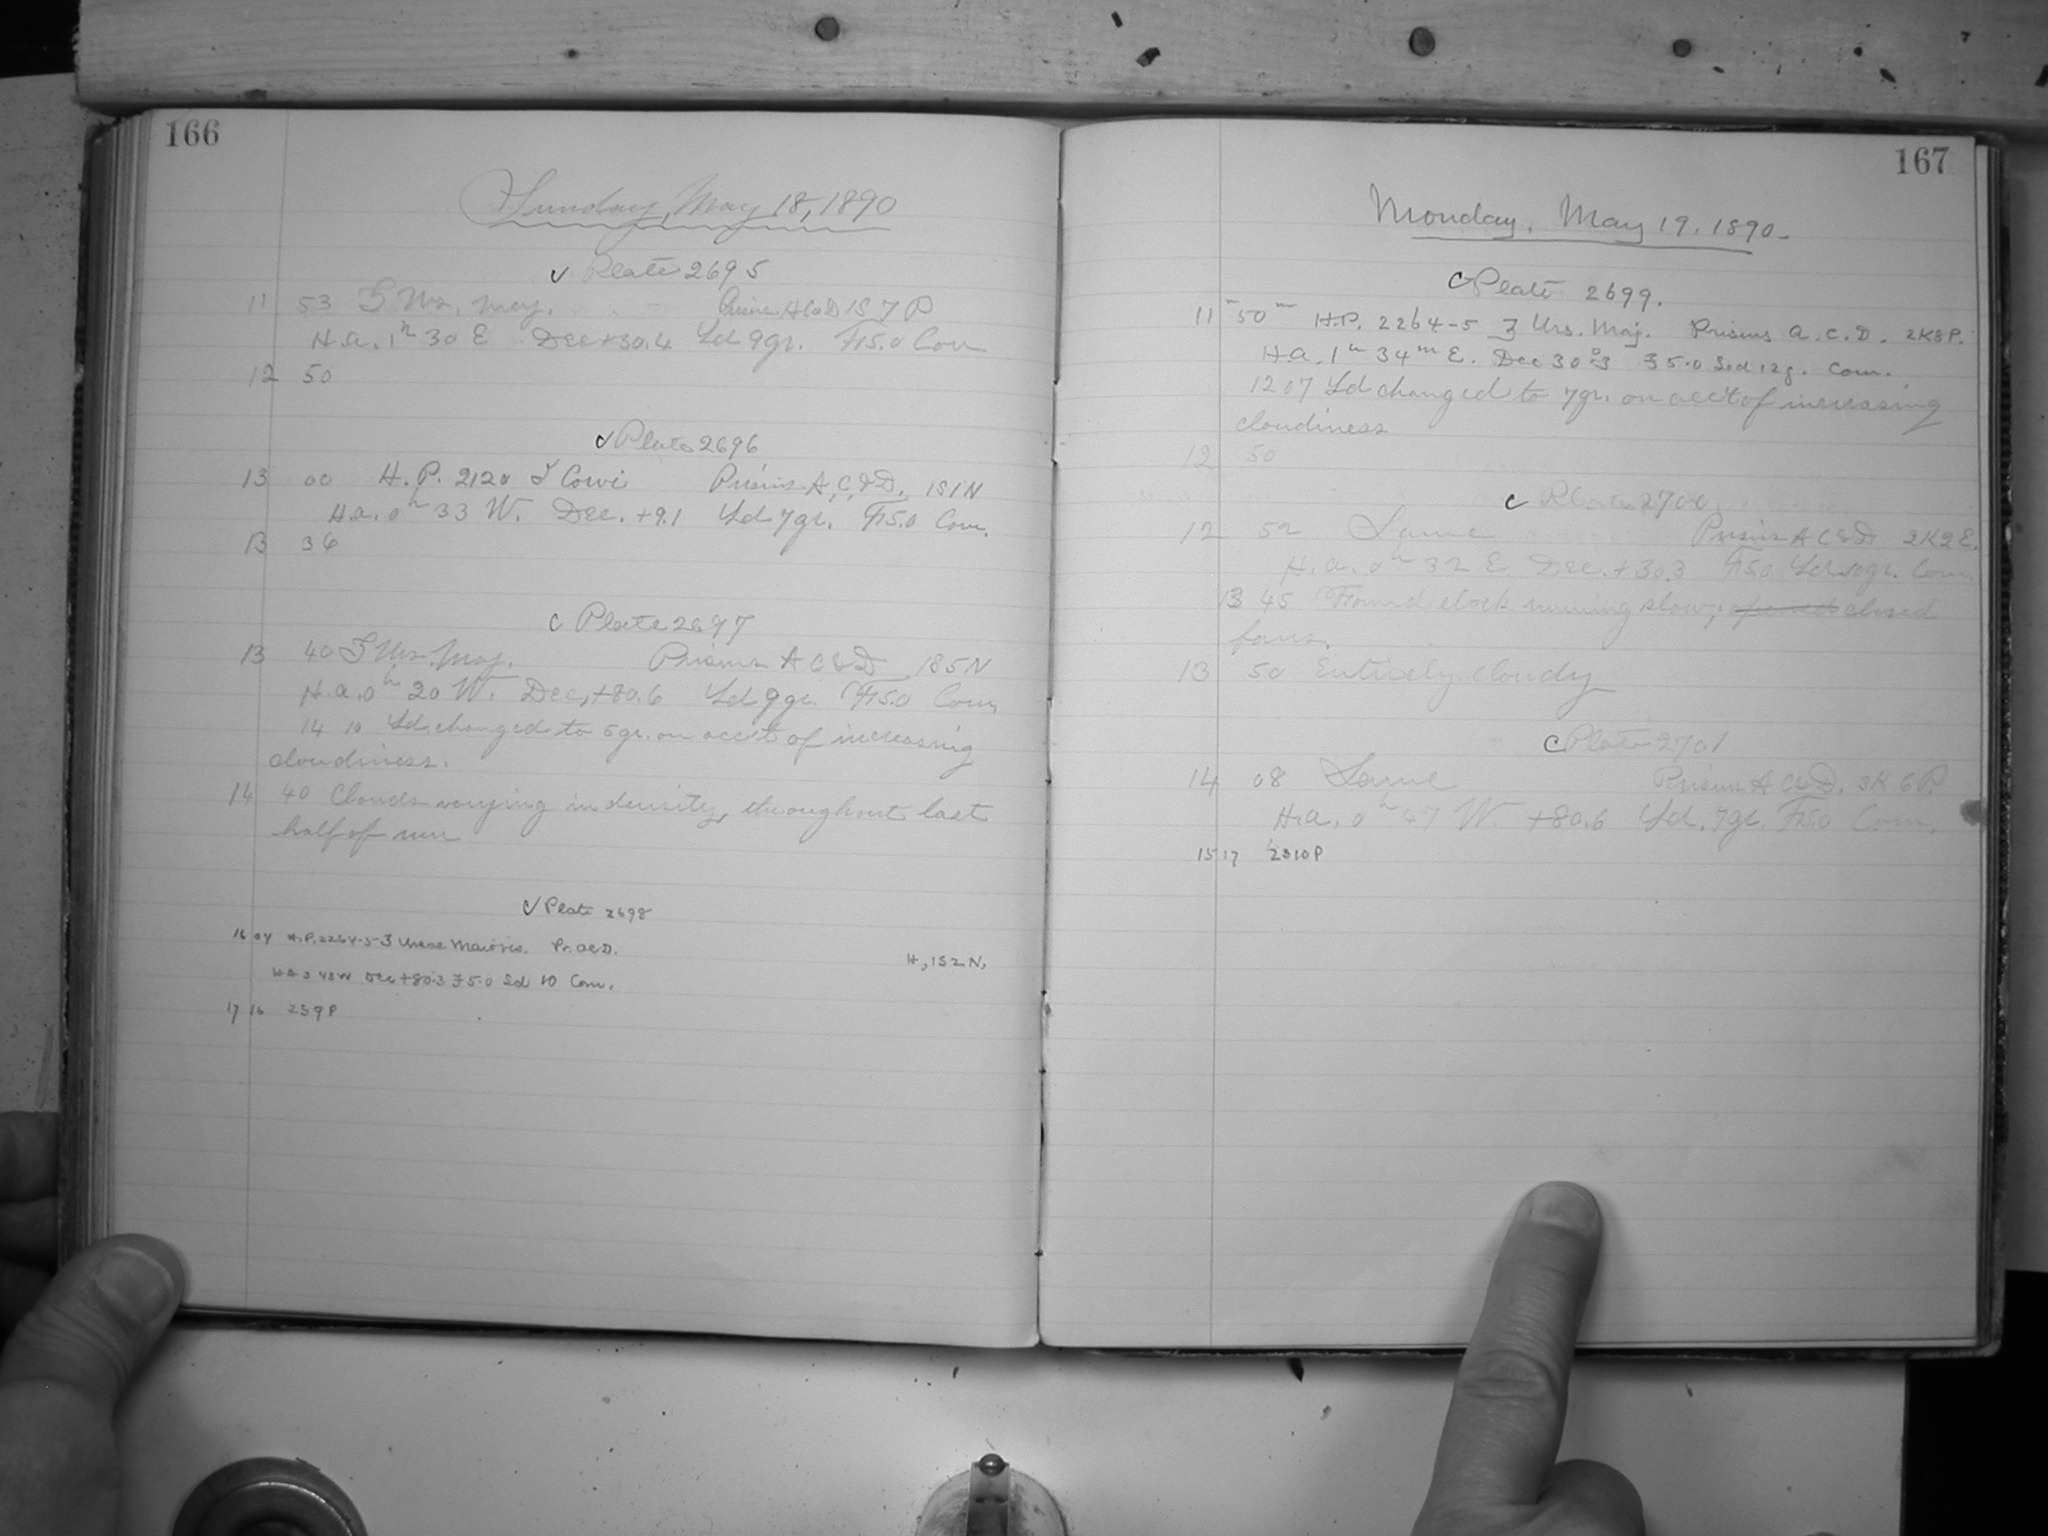 166
Sunday, May 18, 1890
Plate 2695
11 53 ζ Urs. Maj. Prisms A C & D 1S 7 P
H.a. 1h 30 E Dec +30.4 Sd 9gr. F15.0 Com
12 50
Plate 2696
13 00 H. P. 2120 Prisms A, C, & D, 1S1N
H.a. 0h 33 W. Dec. +9.1 Sd 7gr. F15.0 Com.
13 36
Plate 2697
13 40 ζ Urs. Maj. Prisms A C & D 1S5N
H.a. 0h 20 W. Dec, +80.6 Sd 9gr. F15.0 Com,
14 10 Sd. changed to 5gr. on acc't of increasing
cloudiness.
14 40 Clouds varying in density, throughout last
half of run
Plate 2698
16 04 H.P. 2264-5-3 Ursae Maioris. Pr. ACD. H, 1S2N,
HA 3 43W Dec +80.3 F5.0 Sd 10 Com.
17 16 2S9P
167
Monday, May 19, 1890.
Plate 2699.
11h 50m H.P. 2264-5 ζ Urs. Maj. Prisms A. C. D. 2K8P.
H.a. 1h 34m E. Dec 30°3 F5.0 Sed 12g. Com.
12 07 Sd changed to 7gr. on acc't of increasing
cloudiness
12 50
Plate 2700
12 52 Same Prisms A C & D 2K2E.
H.a. 0h 32 E. Dec. +30.3 F5.0 Sd 10gr. Com.
13 45 Found clock running slow; opened closed
13 50 Entirely cloudy
Plate 2701
14 08 Same Prisms A C & D. 3K 6P.
H.a. 0h 47 W. +80.6 Sd. 7gr. F15.0 Com.
15 17 2S10P